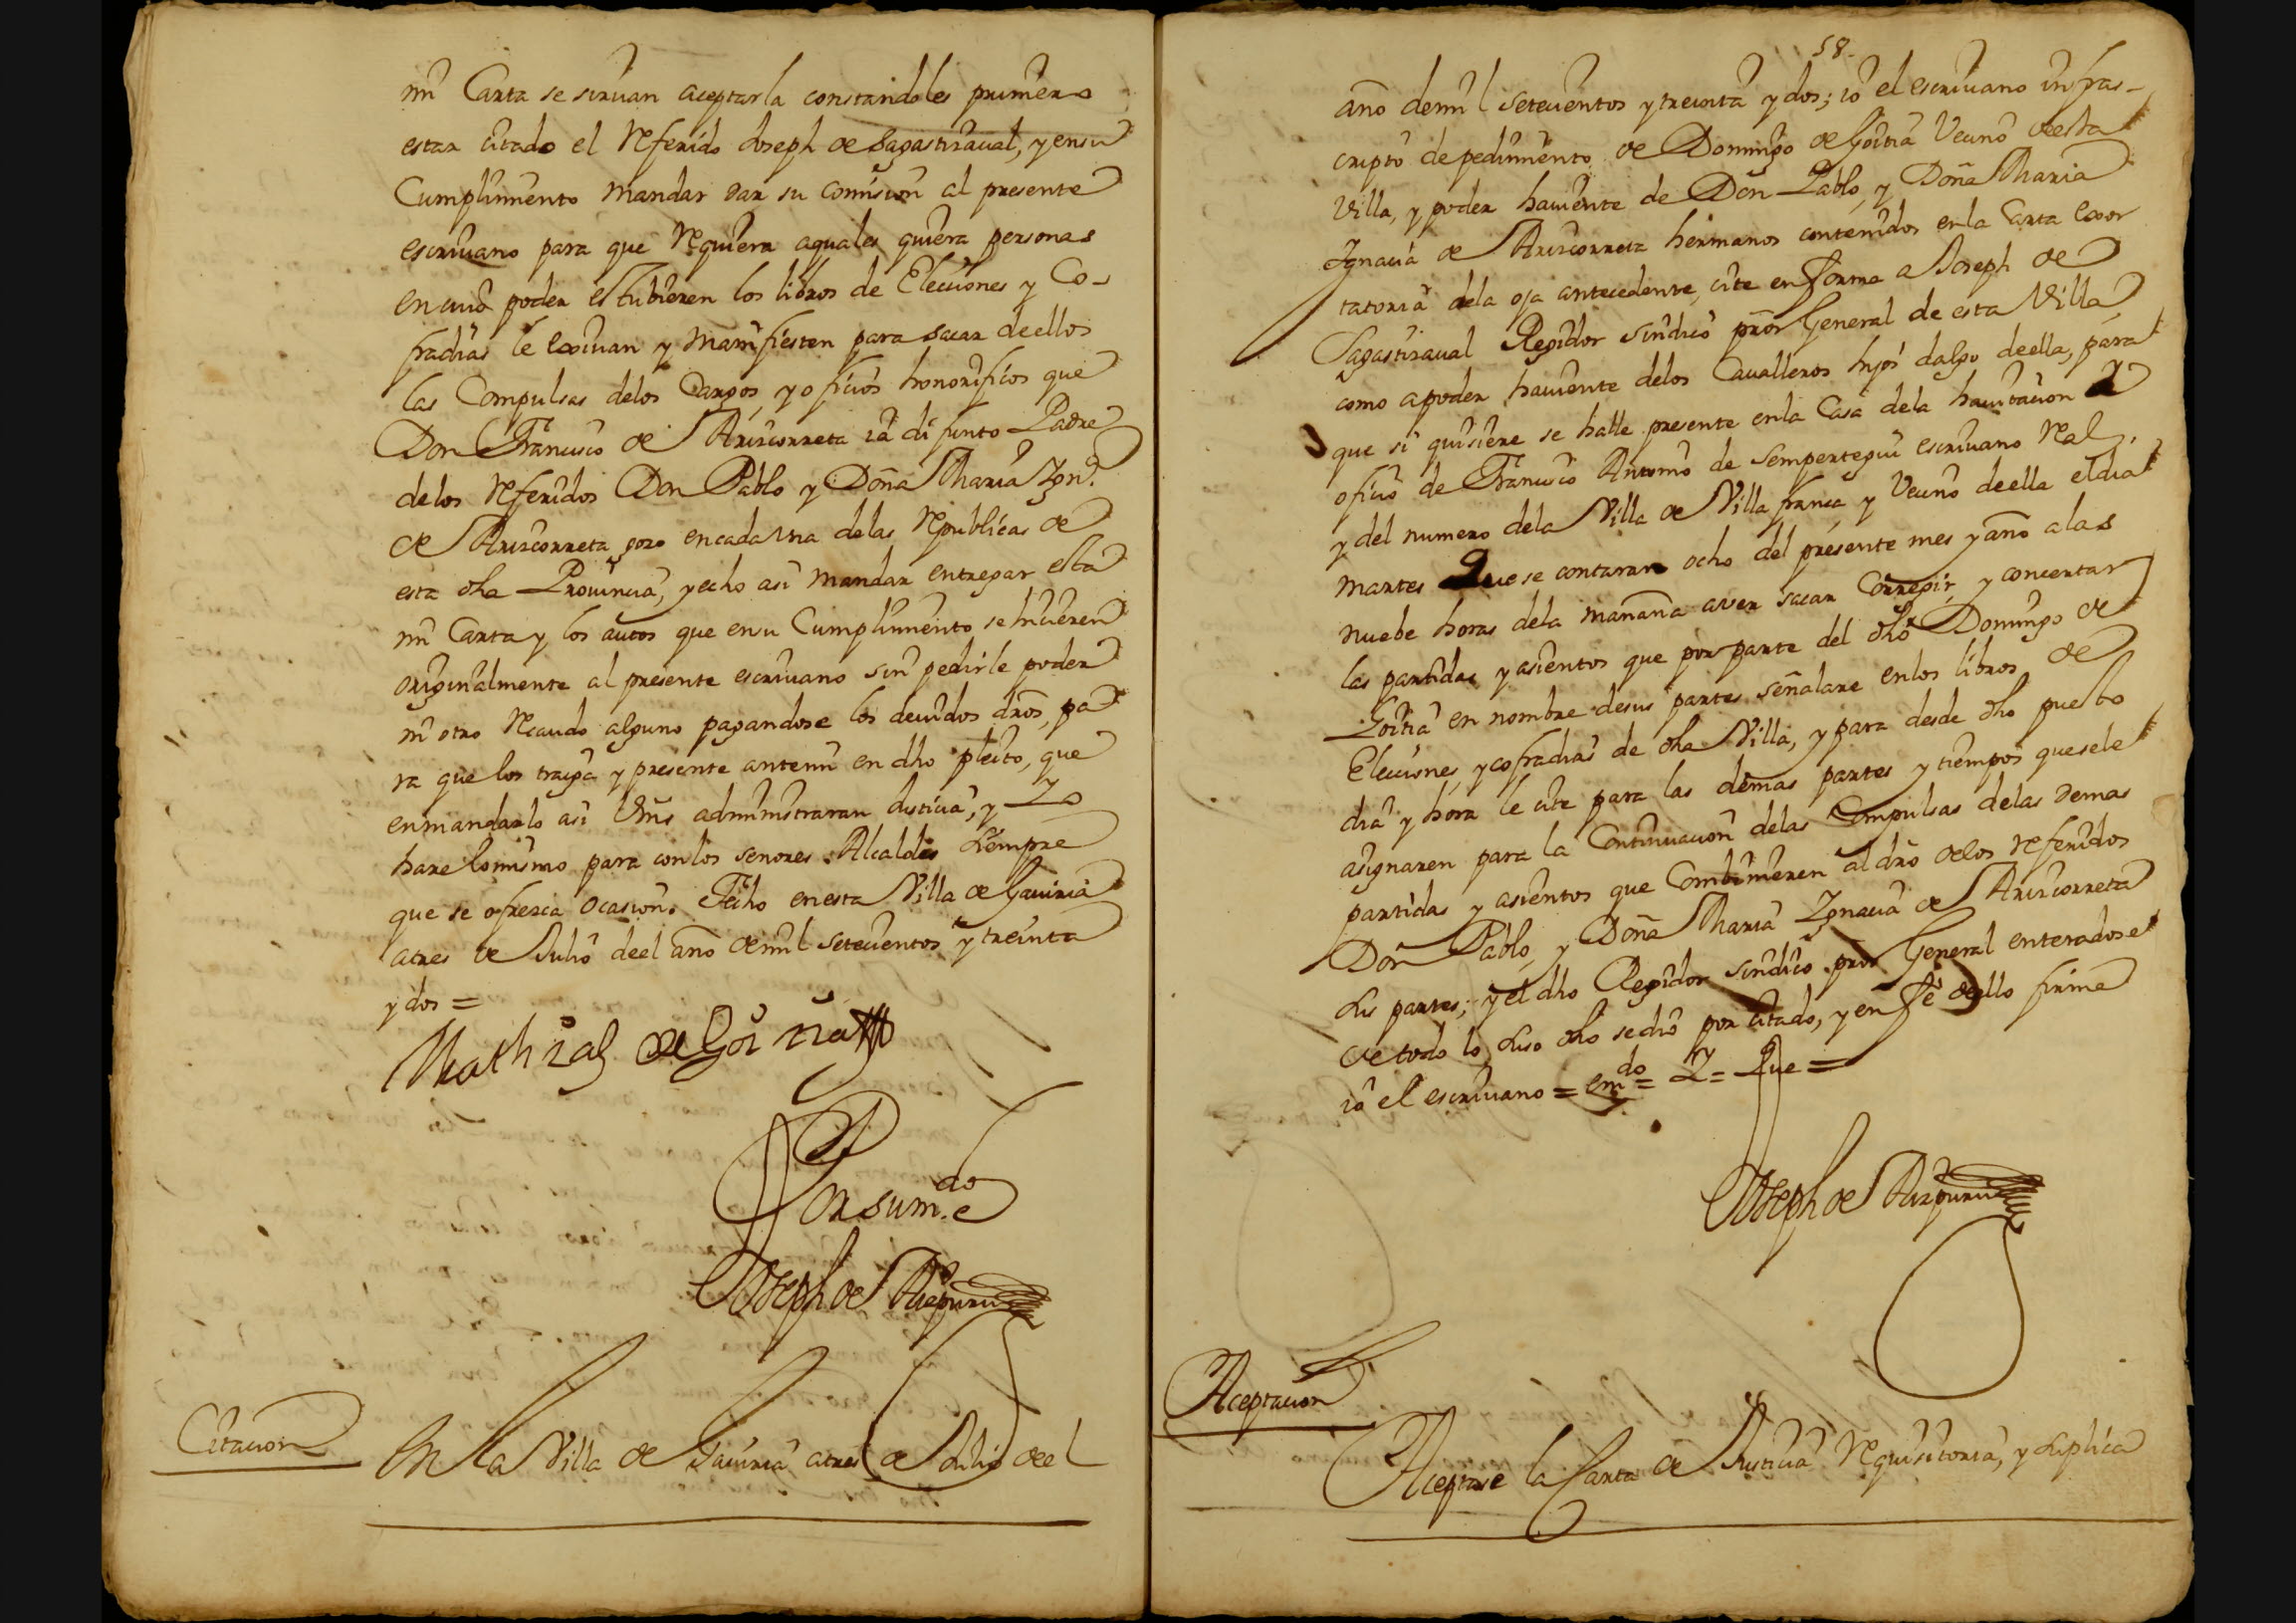 mi Carta se siruan aceptarla constandoles primero
estar citado el Referido Joseph de Sagastizaual, y en su
Cumplimiento mandar dar su comision al presente
escriuano para que Requiera a quales quiera personas
en cuio poder estubieren los libros de Elecciones y Co-
fradias le exiuan y manifiesten para sacar de ellos
las Compulsas de los Cargos, y oficios honorificos que
Don Francisco de Arizcorreta ia difunto Padre
de los Referidos Don Pablo y Doña Maria Ygn.ª
de Arizcorreta gozo en cada vna de las Republicas de
esta dha Prouincia, y echo asi mandar entregar esta
mi Carta y los autos que en su Cumplimiento se hicieren
originalmente al presente escriuano sin pedirle poder
ni otro Recaudo alguno pagandose los deuidos dros, pa
ra que los traiga y presente ante mi en dho pleito, que
en mandarlo asi Vms administraran Justicia, y Yo
hare lo mismo para con los señores Alcaldes siempre
que se ofrezca ocasion. Fecho en esta Villa de Gauiria
a tres de Julio de el año de mil setecientos y treinta
y dos =
Mathias de Goi
Por su m.do
Joseph de Aizpuru
Citacion
En la Villa de Gauiria a tres de Julio de el
58.
año de mil setecientos y treinta y dos; io el escriuano infras-
cripto de pedimiento de Domingo de Goitia Vecino de esta
Villa, y poder hauiente de Don Pablo, y Doña Maria
Ignacia de Arizcorreta hermanos contenidos en la Carta exor
tatoria de la oja antecedente, cite en forma a Joseph de
Sagastizaual Regidor sindico pror General de esta Villa,
como a poder hauiente de los Caualleros hijos dalgo de ella, para
que si quisiere se halle presente en la Casa de la hauitacion y
oficio de Francisco Antonio de Sempertegui escriuano Real,
y del numero de la Villa de Villafranca y Vecino de ella el dia
martes Que se contaran ocho del presente mes y año a las
nuebe horas de la mañana a ver sacar Corregir, y concertar
las partidas y asientos que por parte del dho Domingo de
Goitia en nombre de sus partes señalare en los libros de
Elecciones, y cofradias de dha Villa, y para desde dho puesto
dia y hora le cite para las demas partes y tiempos que se le
asignaren para la Continuacion de las Compulsas de las demas
partidas y asientos que Combinieren al dro de los referidos
Don Pablo, y Doña Maria Ygnacia de Arizcorreta
sus partes; y el dho Regidor sindico pror General enterado se
de todo lo suso dho se dio por citado, y en fe de ello firme
io el escriuano = em.do = y = Que =
Joseph de Aizpuru
Aceptacion
Aceptase la Carta de Justicia Requisitoria, y suplica